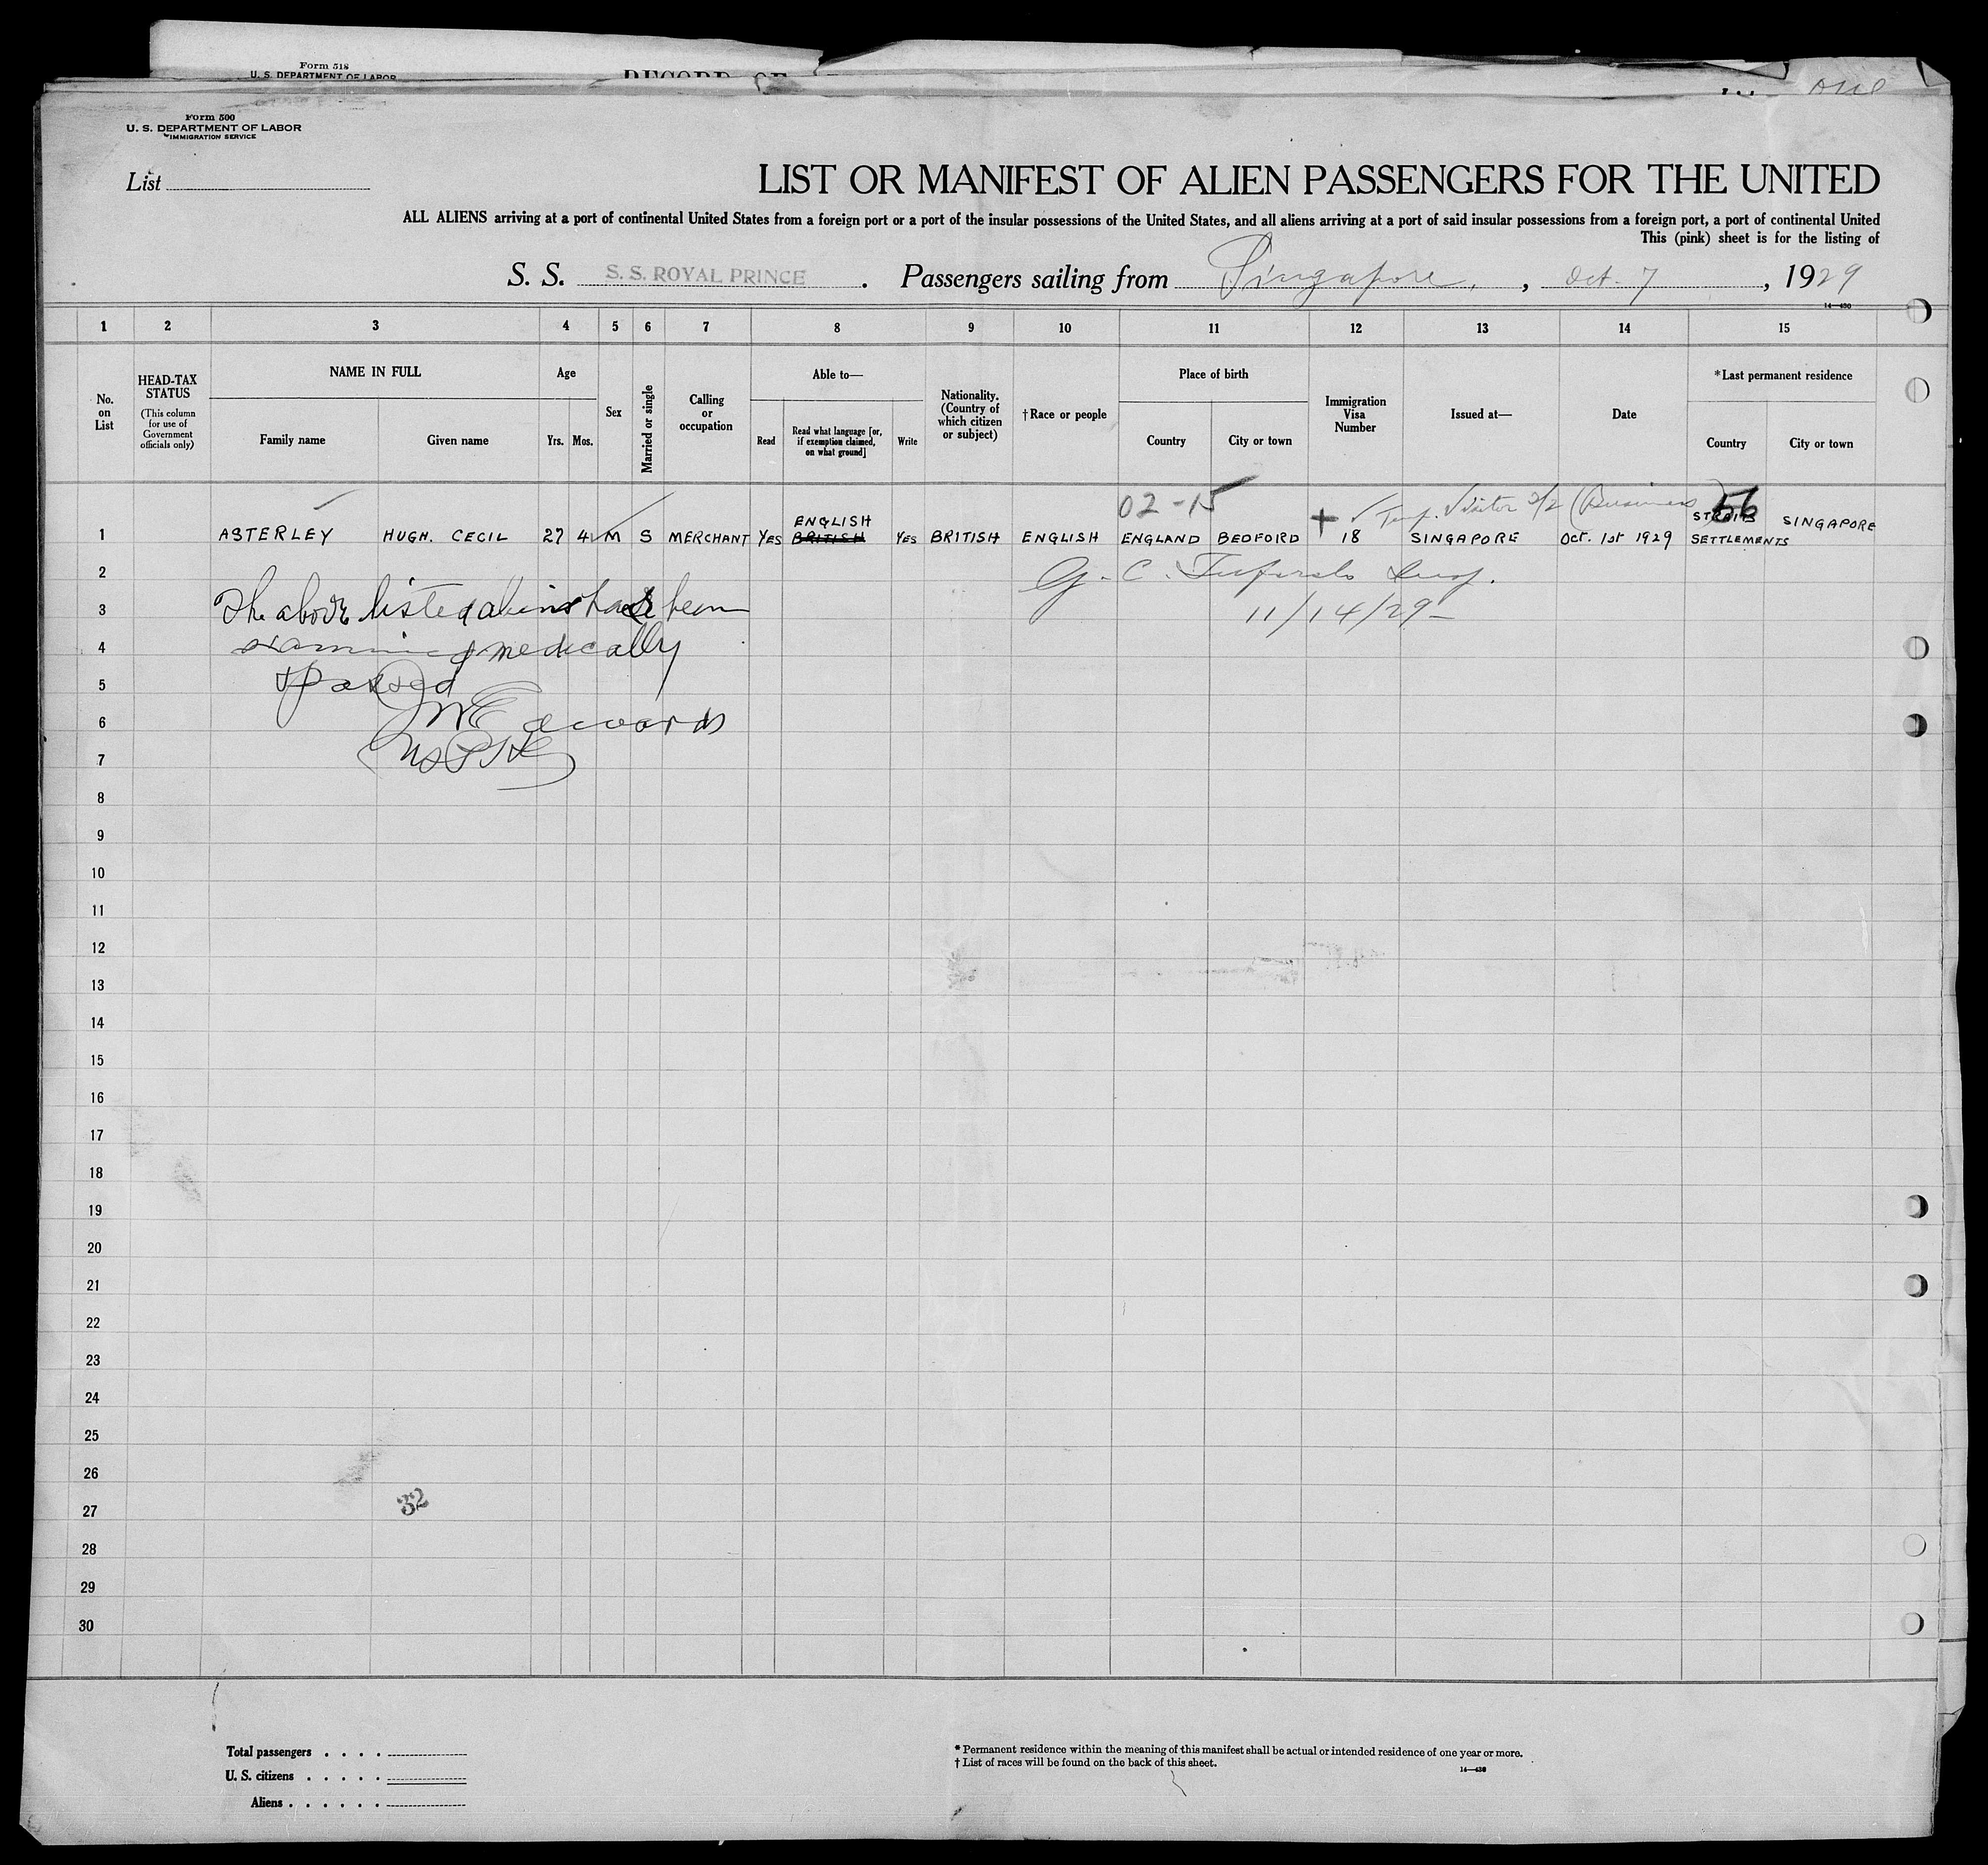 Form 518
U. S. DEPARTMENT OF LABOR
RECORD OF
Form 500
U. S. DEPARTMENT OF LABOR
IMMIGRATION SERVICE
List
LIST OR MANIFEST OF ALIEN PASSENGERS FOR THE UNITED
ALL ALIENS arriving at a port of continental United States from a foreign port or a port of the insular possessions of the United States, and all aliens arriving at a port of said insular possessions from a foreign port, a port of continental United
This (pink) sheet is for the listing of
S. S. S. S. ROYAL PRINCE . Passengers sailing from Singapore, , Oct. 7 , 1929
14—430
1 2 3 4 5 6 7 8 9 10 11 12 13 14 15
No. on List
HEAD-TAX STATUS
(This column for use of Government officials only)
NAME IN FULL
Family name
Given name
Age
Yrs.
Mos.
Sex
Married or single
Calling or occupation
Able to—
Read
Read what language [or, if exemption claimed, on what ground]
Write
Nationality. (Country of which citizen or subject)
†Race or people
Place of birth
Country
City or town
Immigration Visa Number
Issued at—
Date
*Last permanent residence
Country
City or town
02-15 Temp. Visitor 3/2 (Business) 56
1 ASTERLEY HUGH. CECIL 27 4 M S MERCHANT YES ENGLISH BRITISH YES BRITISH ENGLISH ENGLAND BEDFORD 18 SINGAPORE Oct. 1st 1929 STRAITS SETTLEMENTS SINGAPORE
2
G. C. Insp.
3 The above listed aliens have been
11/14/29
4 examined medically
5 & passed
6 JW Edwards
7 USPHS
8
9
10
11
12
13
14
15
16
17
18
19
20
21
22
23
24
25
26
27
32
28
29
30
Total passengers . . . .
U. S. citizens . . . . .
Aliens . . . . . .
* Permanent residence within the meaning of this manifest shall be actual or intended residence of one year or more.
† List of races will be found on the back of this sheet.
14—430